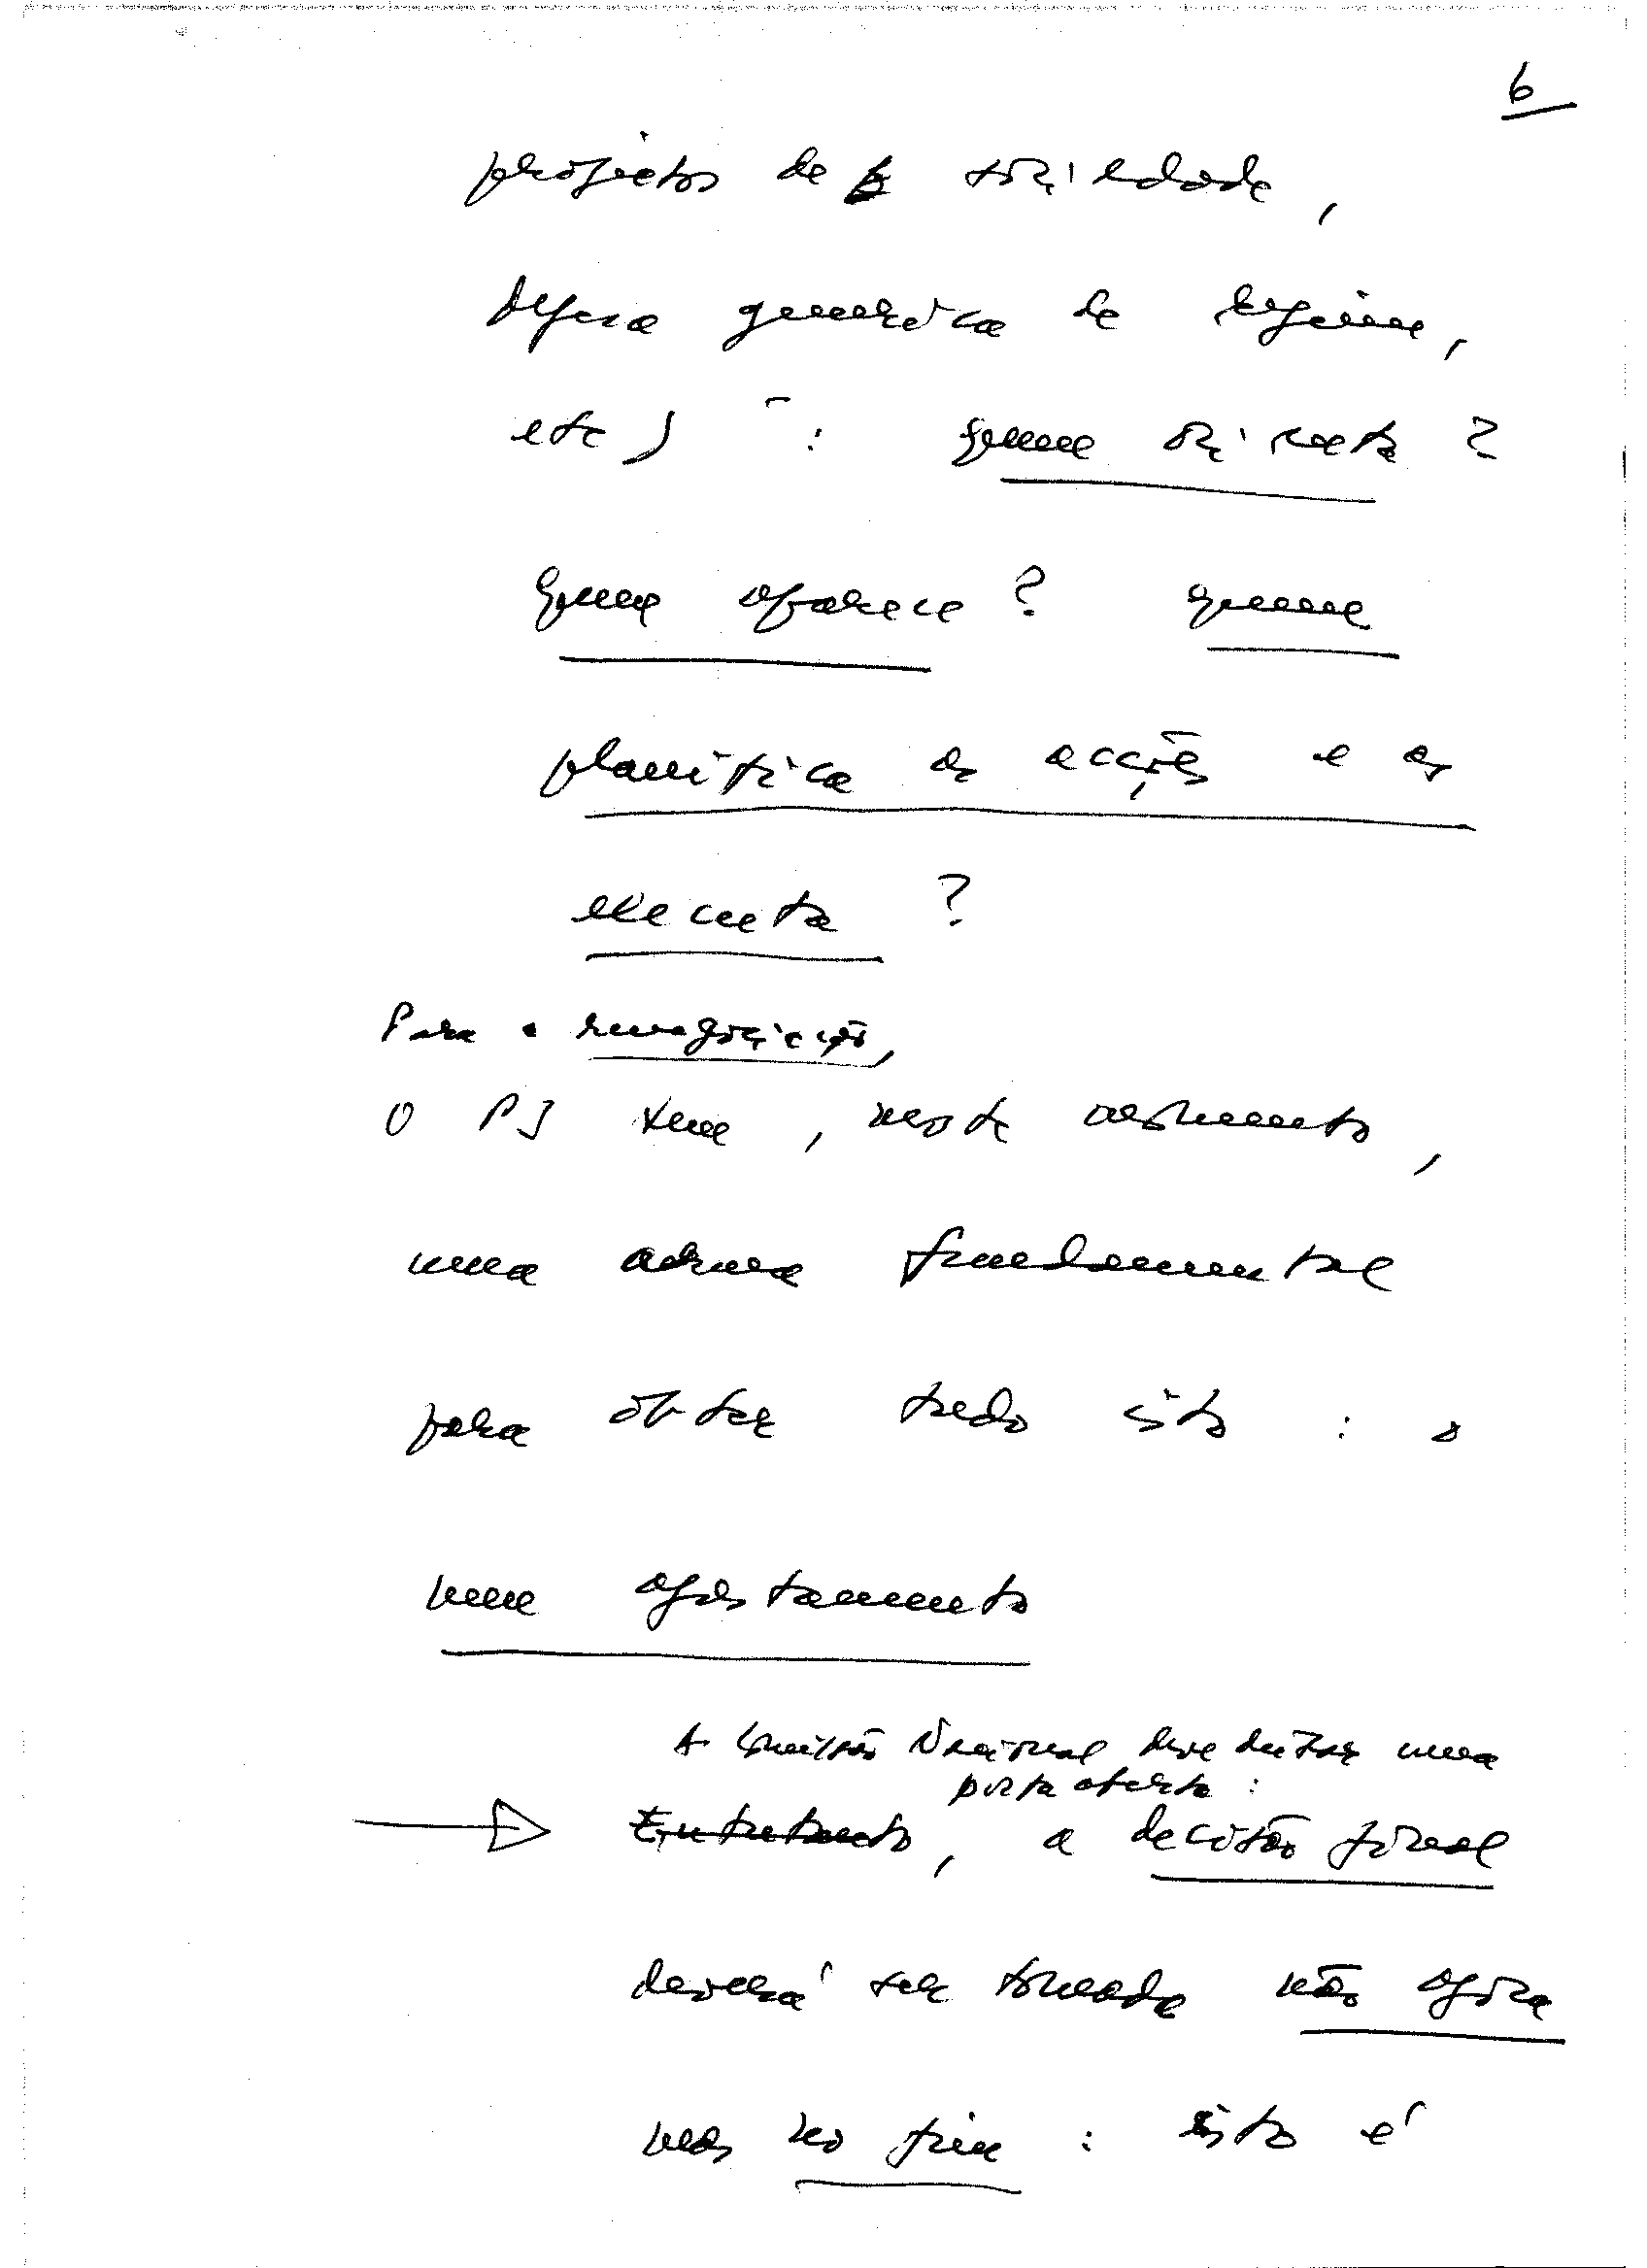 6
projectos de sociedade,
defesa genérica de regime,
etc) : quem orienta?
quem aparece? quem
planifica as acções e as
executa?
Para a renegociação,
O PS tem, neste momento,
uma arma fundamental
para obter tudo isto: o
seu afastamento
A Comissão Nacional deve deixar uma
porta aberta:
Entretanto, a decisão final
deverá ser tomada não agora
mas no fim: isto é